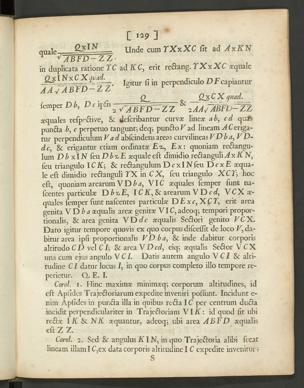 [ 129 ]
quale Q×IN / A√ABFD − ZZ. Unde cum YX×XC sit ad A×KN
in duplicata ratione YC ad KC, erit rectang. YX×XC æquale
Q×IN×CX quad. / AA√ABFD − ZZ. Igitur si in perpendiculo DF capiantur
semper Db, Dc ipsis Q / 2√ABFD − ZZ & Q×CX quad. / 2AA√ABFD − ZZ
æquales respective, & describantur curvæ lineæ ab, cd quas
puncta b, c perpetuo tangunt; deq; puncto V ad lineam AC eriga-
tur perpendiculum Va abscindens areas curvilineas VDba, VD-
dc, & erigantur etiam ordinatæ Ez, Ex: quoniam rectangu-
lum Db×IN seu DbzE æquale est dimidio rectanguli A×KN,
seu triangulo ICK; & rectangulum Dc×IN seu DcxE æqua-
le est dimidio rectanguli YX in CX, seu triangulo XCY; hoc
est, quoniam arearum VDba, VIC æquales semper sunt na-
scentes particulæ DbzE, ICK, & arearum VDcd, VCX æ-
quales semper sunt nascentes particulæ DExc, XCY, erit area
genita VDba æqualis areæ genitæ VIC, adeoq; tempori propor-
tionalis, & area genita VDdc æqualis Sectori genito VCX.
Dato igitur tempore quovis ex quo corpus discessit de loco V, da-
bitur area ipsi proportionalis VDba, & inde dabitur corporis
altitudo CD vel CI, & area VDcd, eiq; æqualis Sector VCX
una cum ejus angulo VCI. Datis autem angulo VCI & alti-
tudine CI datur locus I, in quo corpus completo illo tempore re-
perietur. Q. E. I.
Corol. 1. Hinc maximæ minimæq; corporum altitudines, id
est Apsides Trajectoriarum expedite inveniri possunt. Incidunt e-
nim Apsides in puncta illa in quibus recta IC per centrum ducta
incidit perpendiculariter in Trajectoriam VIK: id quod fit ubi
rectæ IK & NK æquantur, adeoq; ubi area ABFD æqualis
est ZZ.
Corol. 2. Sed & angulus KIN, in quo Trajectoria alibi secat
lineam illam IC, ex data corporis altitudine IC expedite invenitur:
S